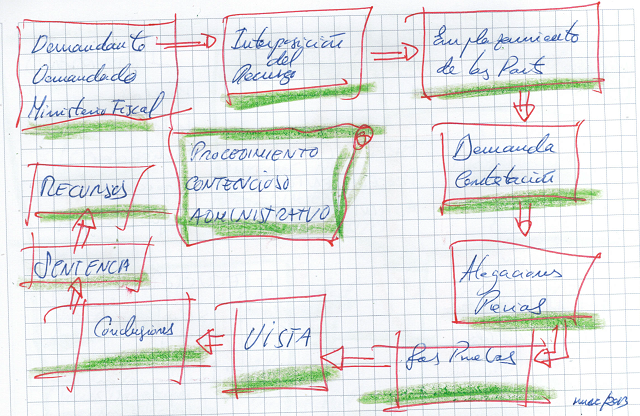 Demandante
Demandado
Ministerio Fiscal
Interposición
del
Recurso
Emplazamiento
de las Parts
Demanda
Contestación
Alegaciones
Previas
Las Pruebas
VISTA
Conclusiones
SENTENCIA
RECURSOS
PROCEDIMIENTO
CONTENCIOSO
ADMINISTRATIVO